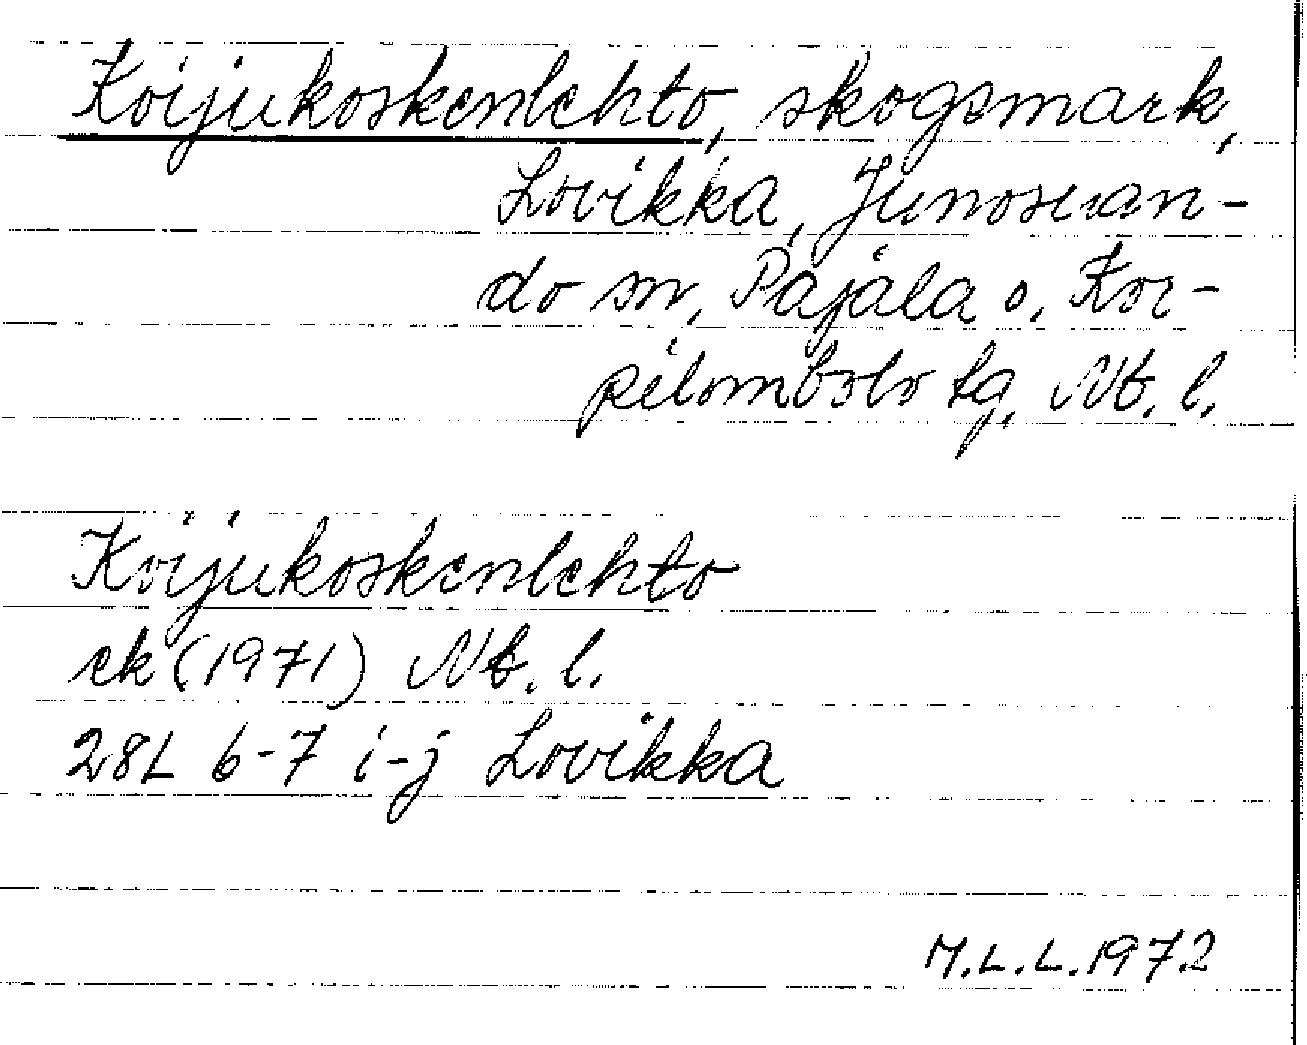 Koijukoskenlehto, skogsmark,
Lovikka, Junosuan-
do sn, Pajala s. Kor-
pilombolo tg, Nb. l.
Koijukoskenlehto
ek (1971) Nb. l.
28L 6-7 i-j Lovikka
M.L.L. 1972